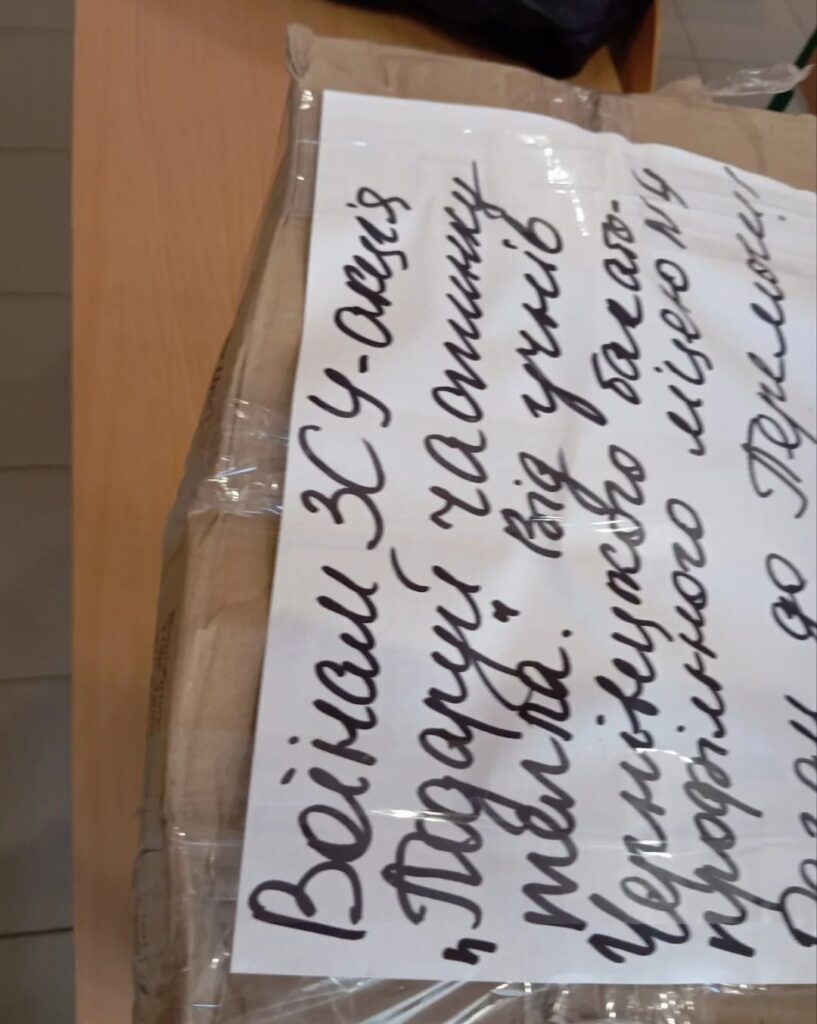 Воїнам ЗСУ-акція
„Подаруй частинку
тепла." Від учнів
Чернівецького багато-
профільного ліцею №4
Разом до Перемоги!